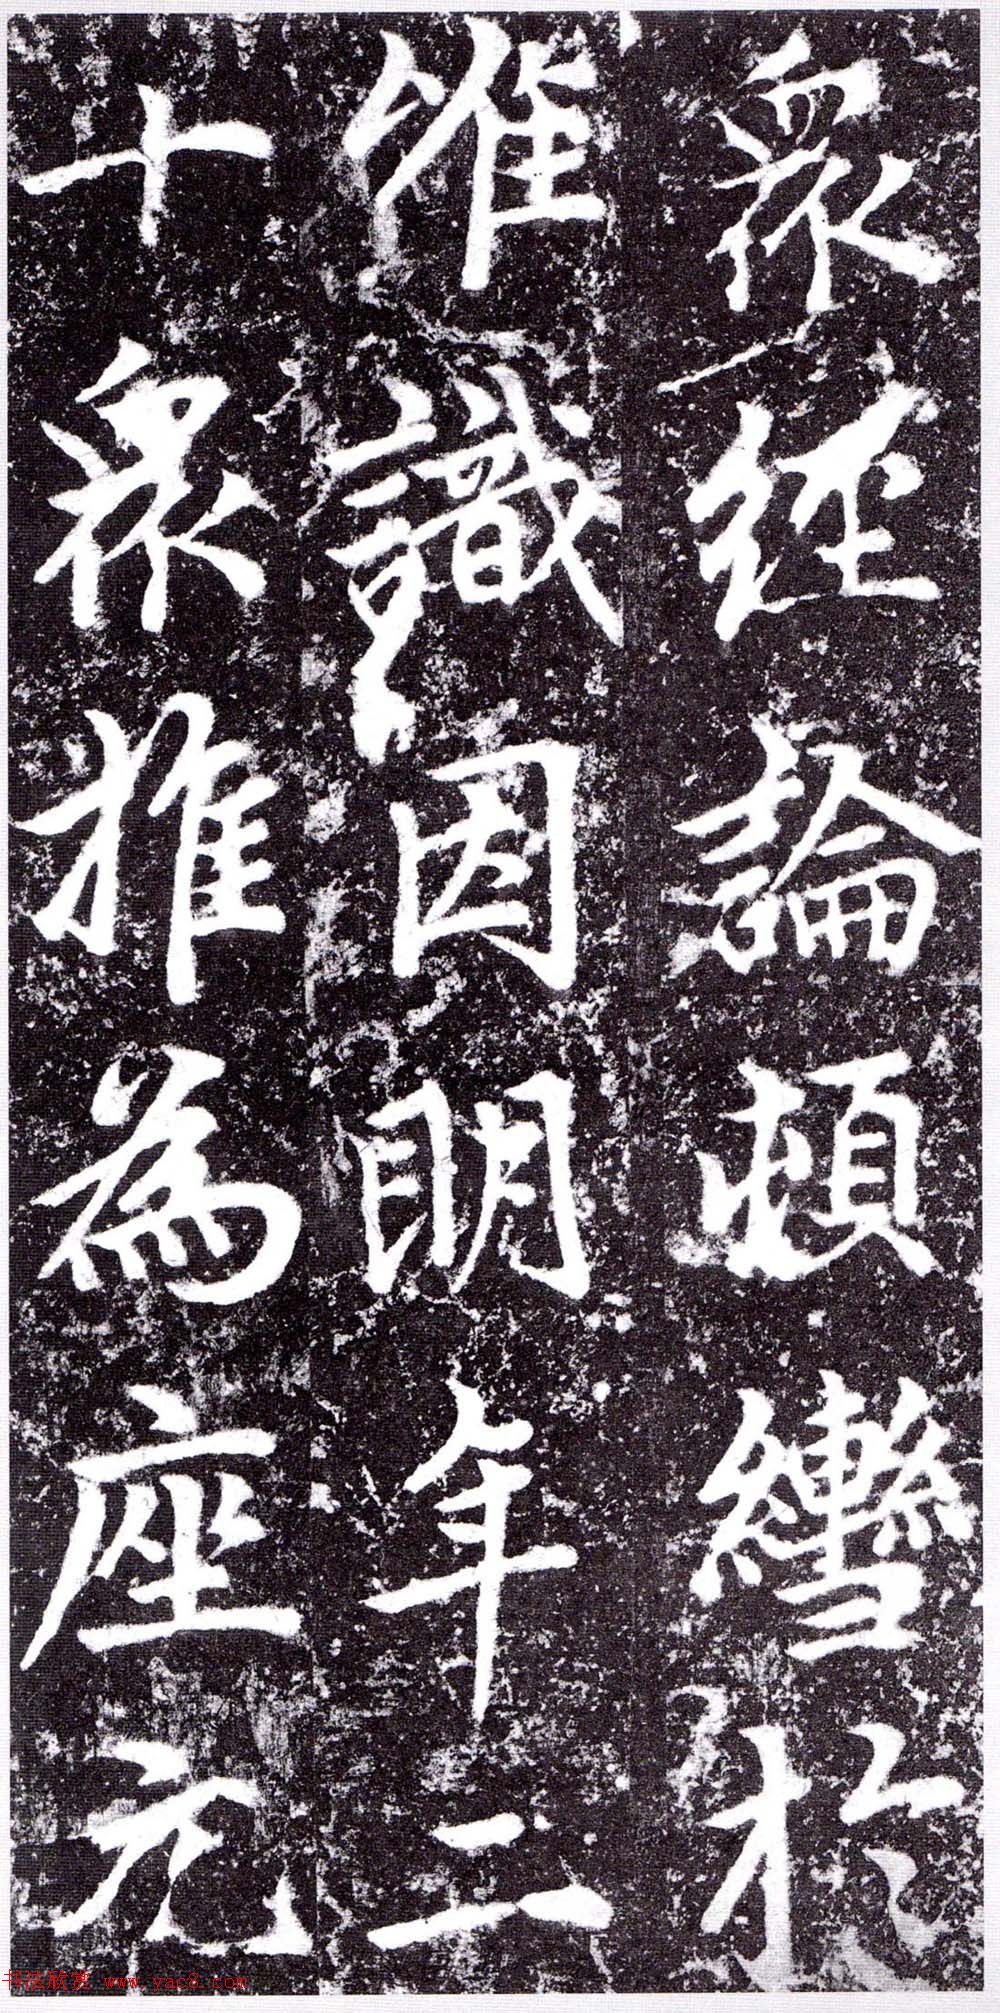 眾經論頓轡於
唯識因明年二
十眾推為座元
书法欣赏 www.yac8.com